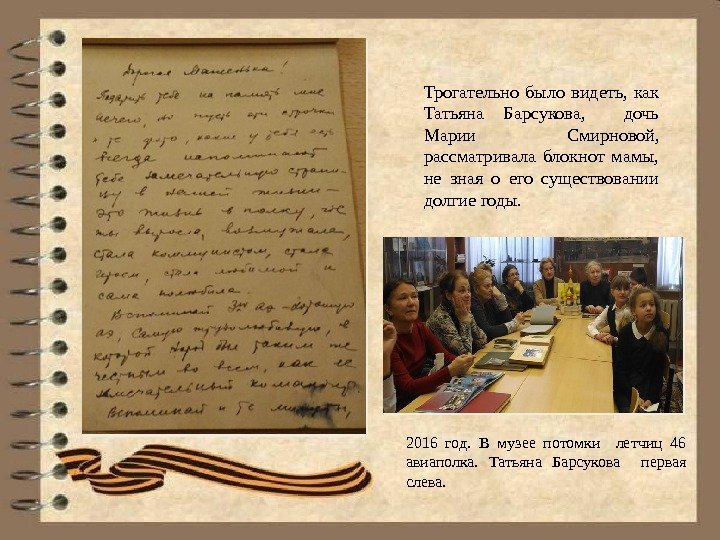 Дорогая Машенька!
Подарить тебе на память мне
нечего, но пусть эти строчки
и те фото, какие у тебя есть
всегда напоминают
тебе замечательную страни-
цу в нашей жизни –
это жизнь в полку, где
ты выросла, возмужала,
стала коммунистом, стала
героем, стала любимой и
сама полюбила.
Вспоминай 3ю аэ –
аэ, самую трудолюбивую, в
которой люди были таким же
честным во всем, как ее
замечательный командир.
Вспоминай и те минуты,
Трогательно было видеть, как
Татьяна Барсукова, дочь
Марии Смирновой,
рассматривала блокнот мамы,
не зная о его существовании
долгие годы.
2016 год. В музее потомки летчиц 46
авиаполка. Татьяна Барсукова первая
слева.